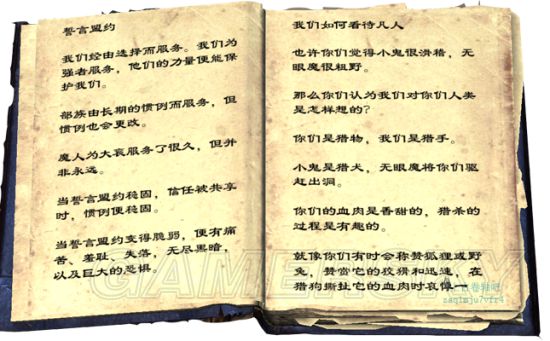 誓言盟约
我们经由选择而服务。我们为
强者服务，他们的力量便能保
护我们。
部族由长期的惯例而服务，但
惯例也会更改。
魔人为大衮服务了很久，但并
非永远。
当誓言盟约稳固，信任被共享
时，惯例便稳固。
当誓言盟约变得脆弱，便有痛
苦、羞耻、失落，无尽黑暗，
以及巨大的恐惧。
我们如何看待凡人
也许你们觉得小鬼很滑稽，无
眼魔很粗野。
那么你们认为我们对你们人类
是怎样想的？
你们是猎物，我们是猎手。
小鬼是猎犬，无眼魔将你们驱
赶出洞。
你们的血肉是香甜的，猎杀的
过程是有趣的。
就像你们有时会称赞狐狸或野
兔，赞赏它的狡猾和迅速，在
猎狗撕扯它的血肉时哀悼一
GAMERSKY
卷轴吧
zaq1mju7vfr4